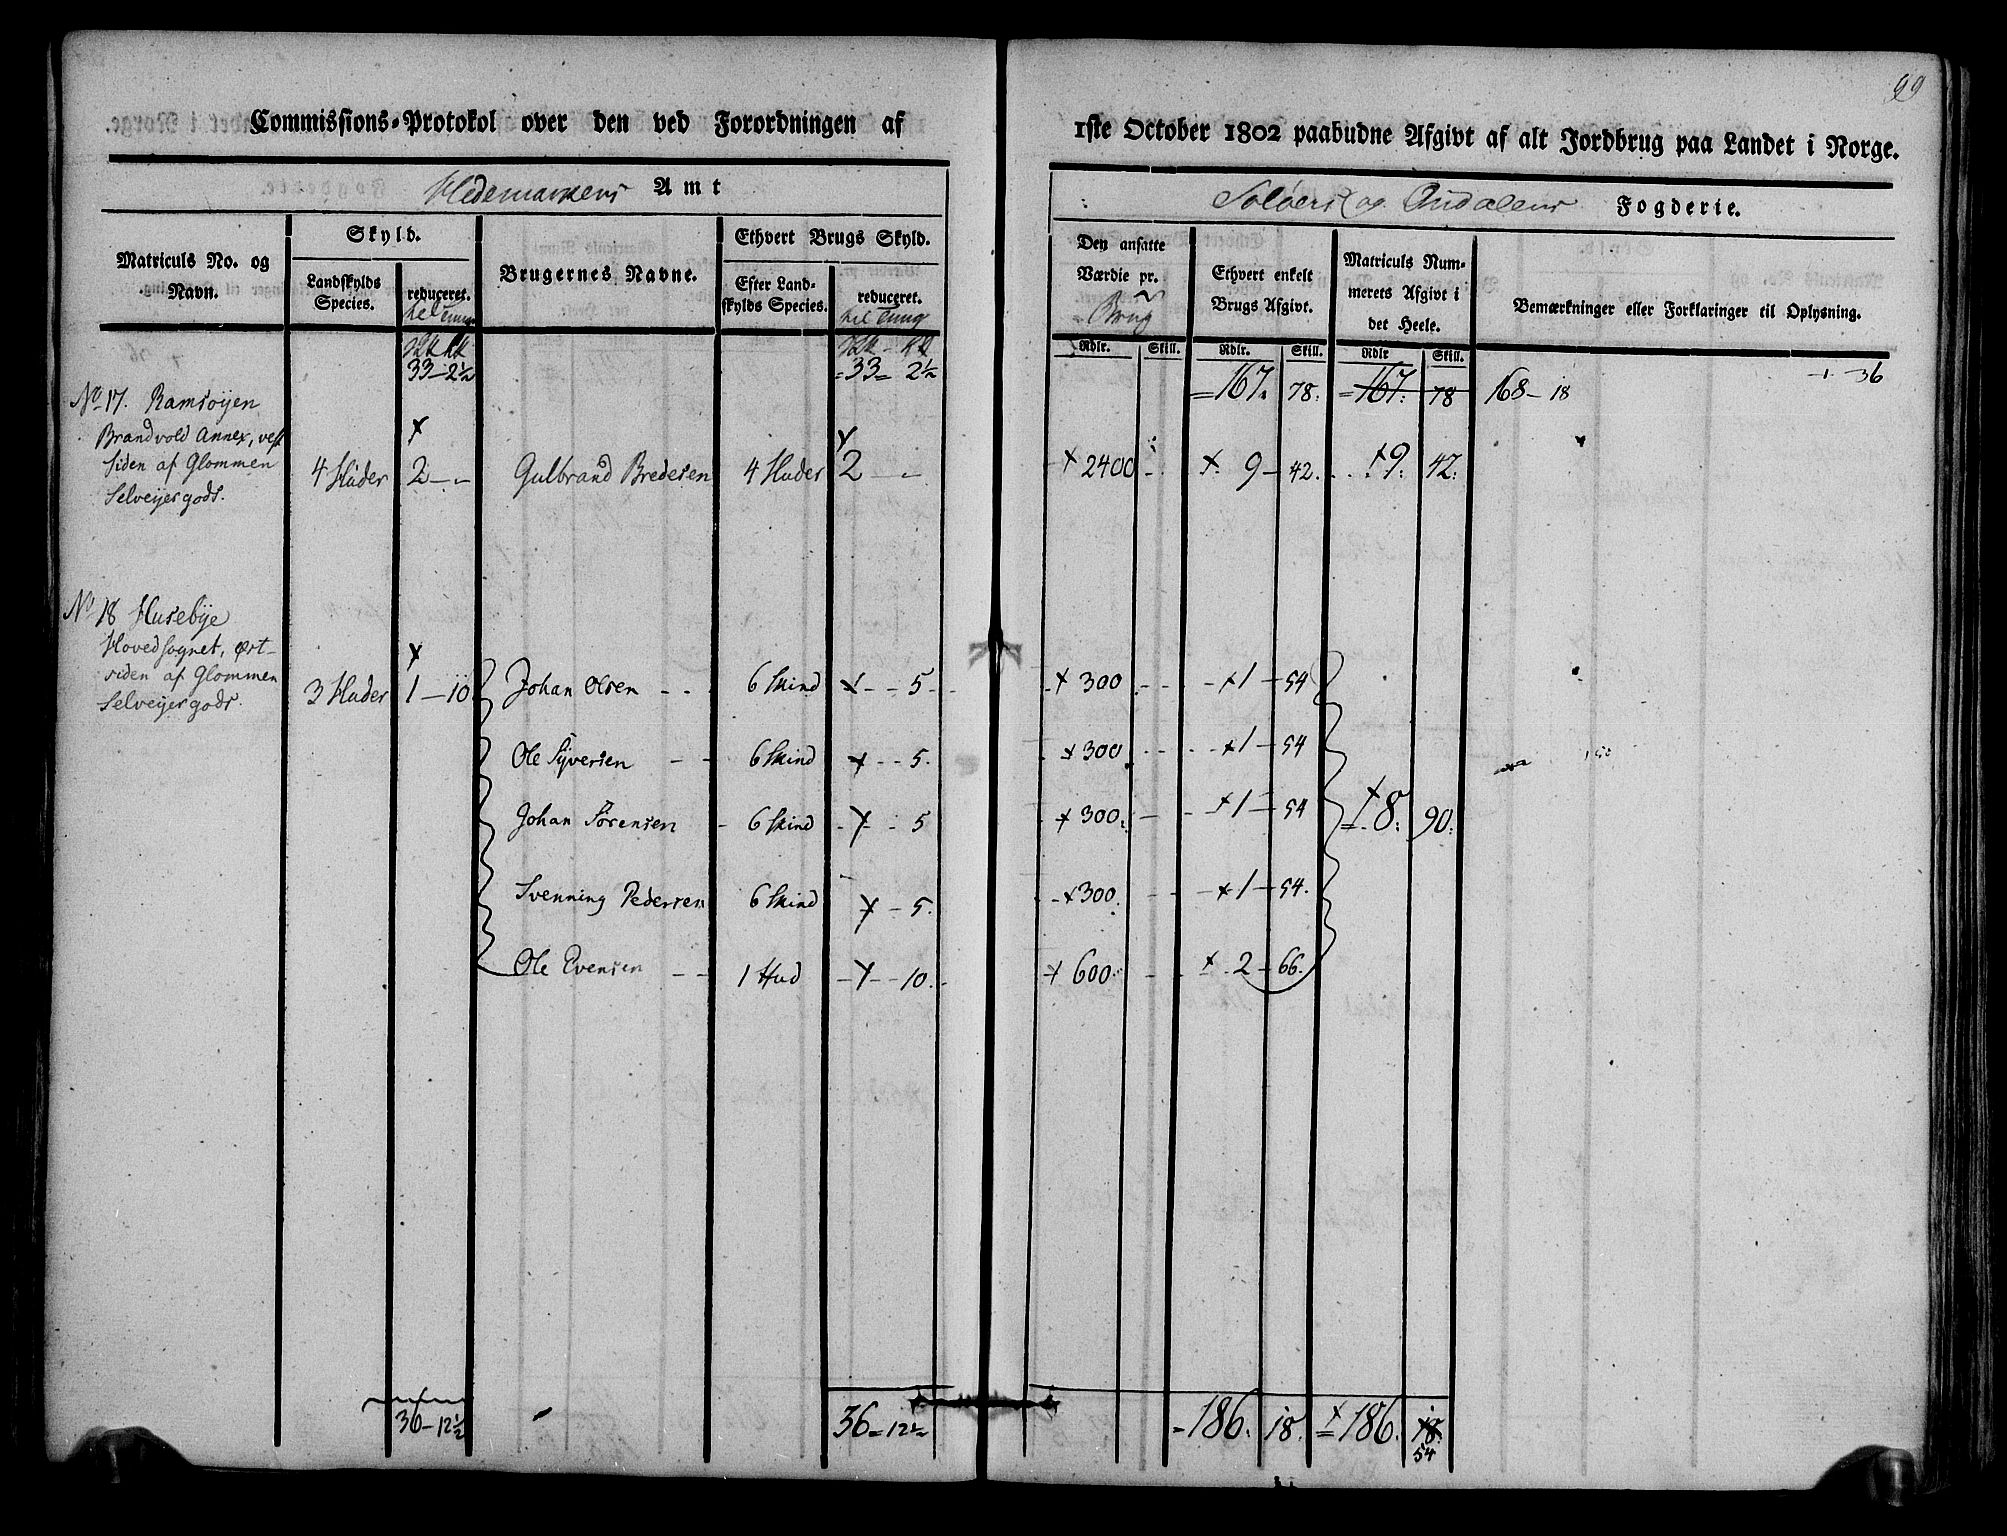 99
Commissions-Protokol over den ved Forordningen af 1ste October 1802 paabudne Afgivt af alt Jordbrug paa Landet i Norge.
Hedemarkens Amt
Soløers og Fogderie.
Matriculs No. og Navn.
Skyld.
Landskylds Species.
reduceret.
Brugernes Navne.
Ethvert Brugs Skyld.
Efter Landskylds Species.
reduceret.
Den ansatte Værdie pr. Brug
Rdlr. Skill.
Ethvert enkelt Brugs Afgivt.
Rdlr. Skill.
Matriculs Nummerets Afgivt i det Heele.
Rdlr Skill.
Bemærkninger eller Forklaringer til Oplysning.
33-2½ =33= 2½ =167. 78: =167: 78 168-18 -1-36
No 17. Ramsøyen
Brandvold Annex, vest
siden af Glommen
Selveyergods.
4 Huder 2 - - Gulbrand Bredesen 4 Huder 2 - - 2400 - 9 - 42. 9: 42:
No 18 Husebÿe
Hovedsognet, øst-
siden af Glommen
Selveyergods.
3 Huder 1-10 Johan Olsen - - 6 Skind - - 5 - 300 - - 1-54
Ole Syversen - - 6 Skind - - 5. 300 - - 1-54
Johan Sørensen - 6 Skind - - 5 300: - 1-54 8: 90:
Svenning Pedersen 6 Skind - 5. 300. - - 1-54.
Ole Evensen - - 1 Hud - - 10. 600: - - 2-66.
36-12½ 36=12½ -186. 18. 186. 18.
54